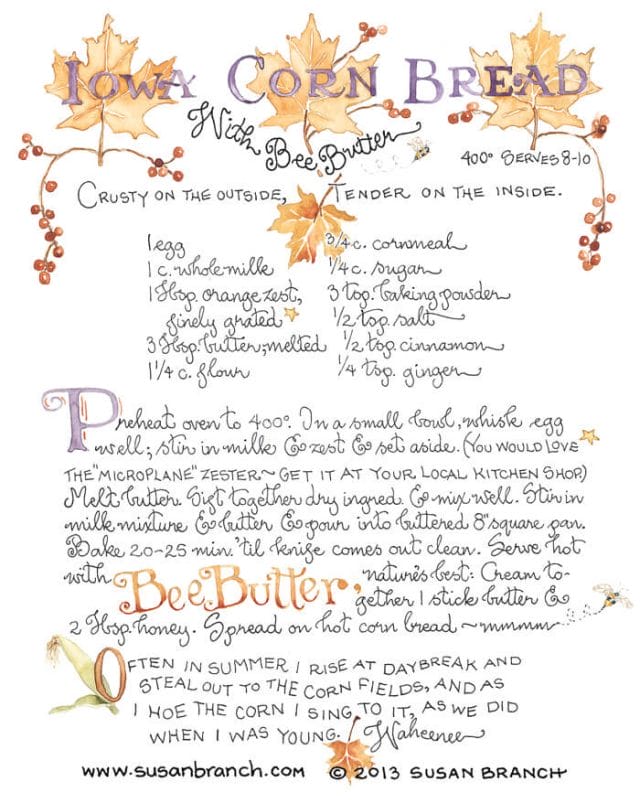 IOWA CORN BREAD
With Bee Butter
400° SERVES 8-10
CRUSTY ON THE OUTSIDE, TENDER ON THE INSIDE.
1 egg
1 c. whole milk
1 Tbsp. orange zest,
finely grated
3 Tbsp. butter, melted
1 1/4 c. flour
3/4 c. cornmeal
1/4 c. sugar
3 tsp. baking powder
1/2 tsp. salt
1/2 tsp. cinnamon
1/4 tsp. ginger
Preheat oven to 400°. In a small bowl, whisk egg
well; stir in milk & zest & set aside. (YOU WOULD LOVE
THE "MICROPLANE" ZESTER ~ GET IT AT YOUR LOCAL KITCHEN SHOP.)
Melt butter. Sift together dry ingred. & mix well. Stir in
milk mixture & butter & pour into buttered 8" square pan.
Bake 20-25 min. 'til knife comes out clean. Serve hot
with Bee Butter, nature's best: Cream to-
gether 1 stick butter &
2 Tbsp. honey. Spread on hot corn bread ~ mmmm
OFTEN IN SUMMER I RISE AT DAYBREAK AND
STEAL OUT TO THE CORN FIELDS, AND AS
I HOE THE CORN I SING TO IT, AS WE DID
WHEN I WAS YOUNG. / Waheenee
www.susanbranch.com © 2013 SUSAN BRANCH